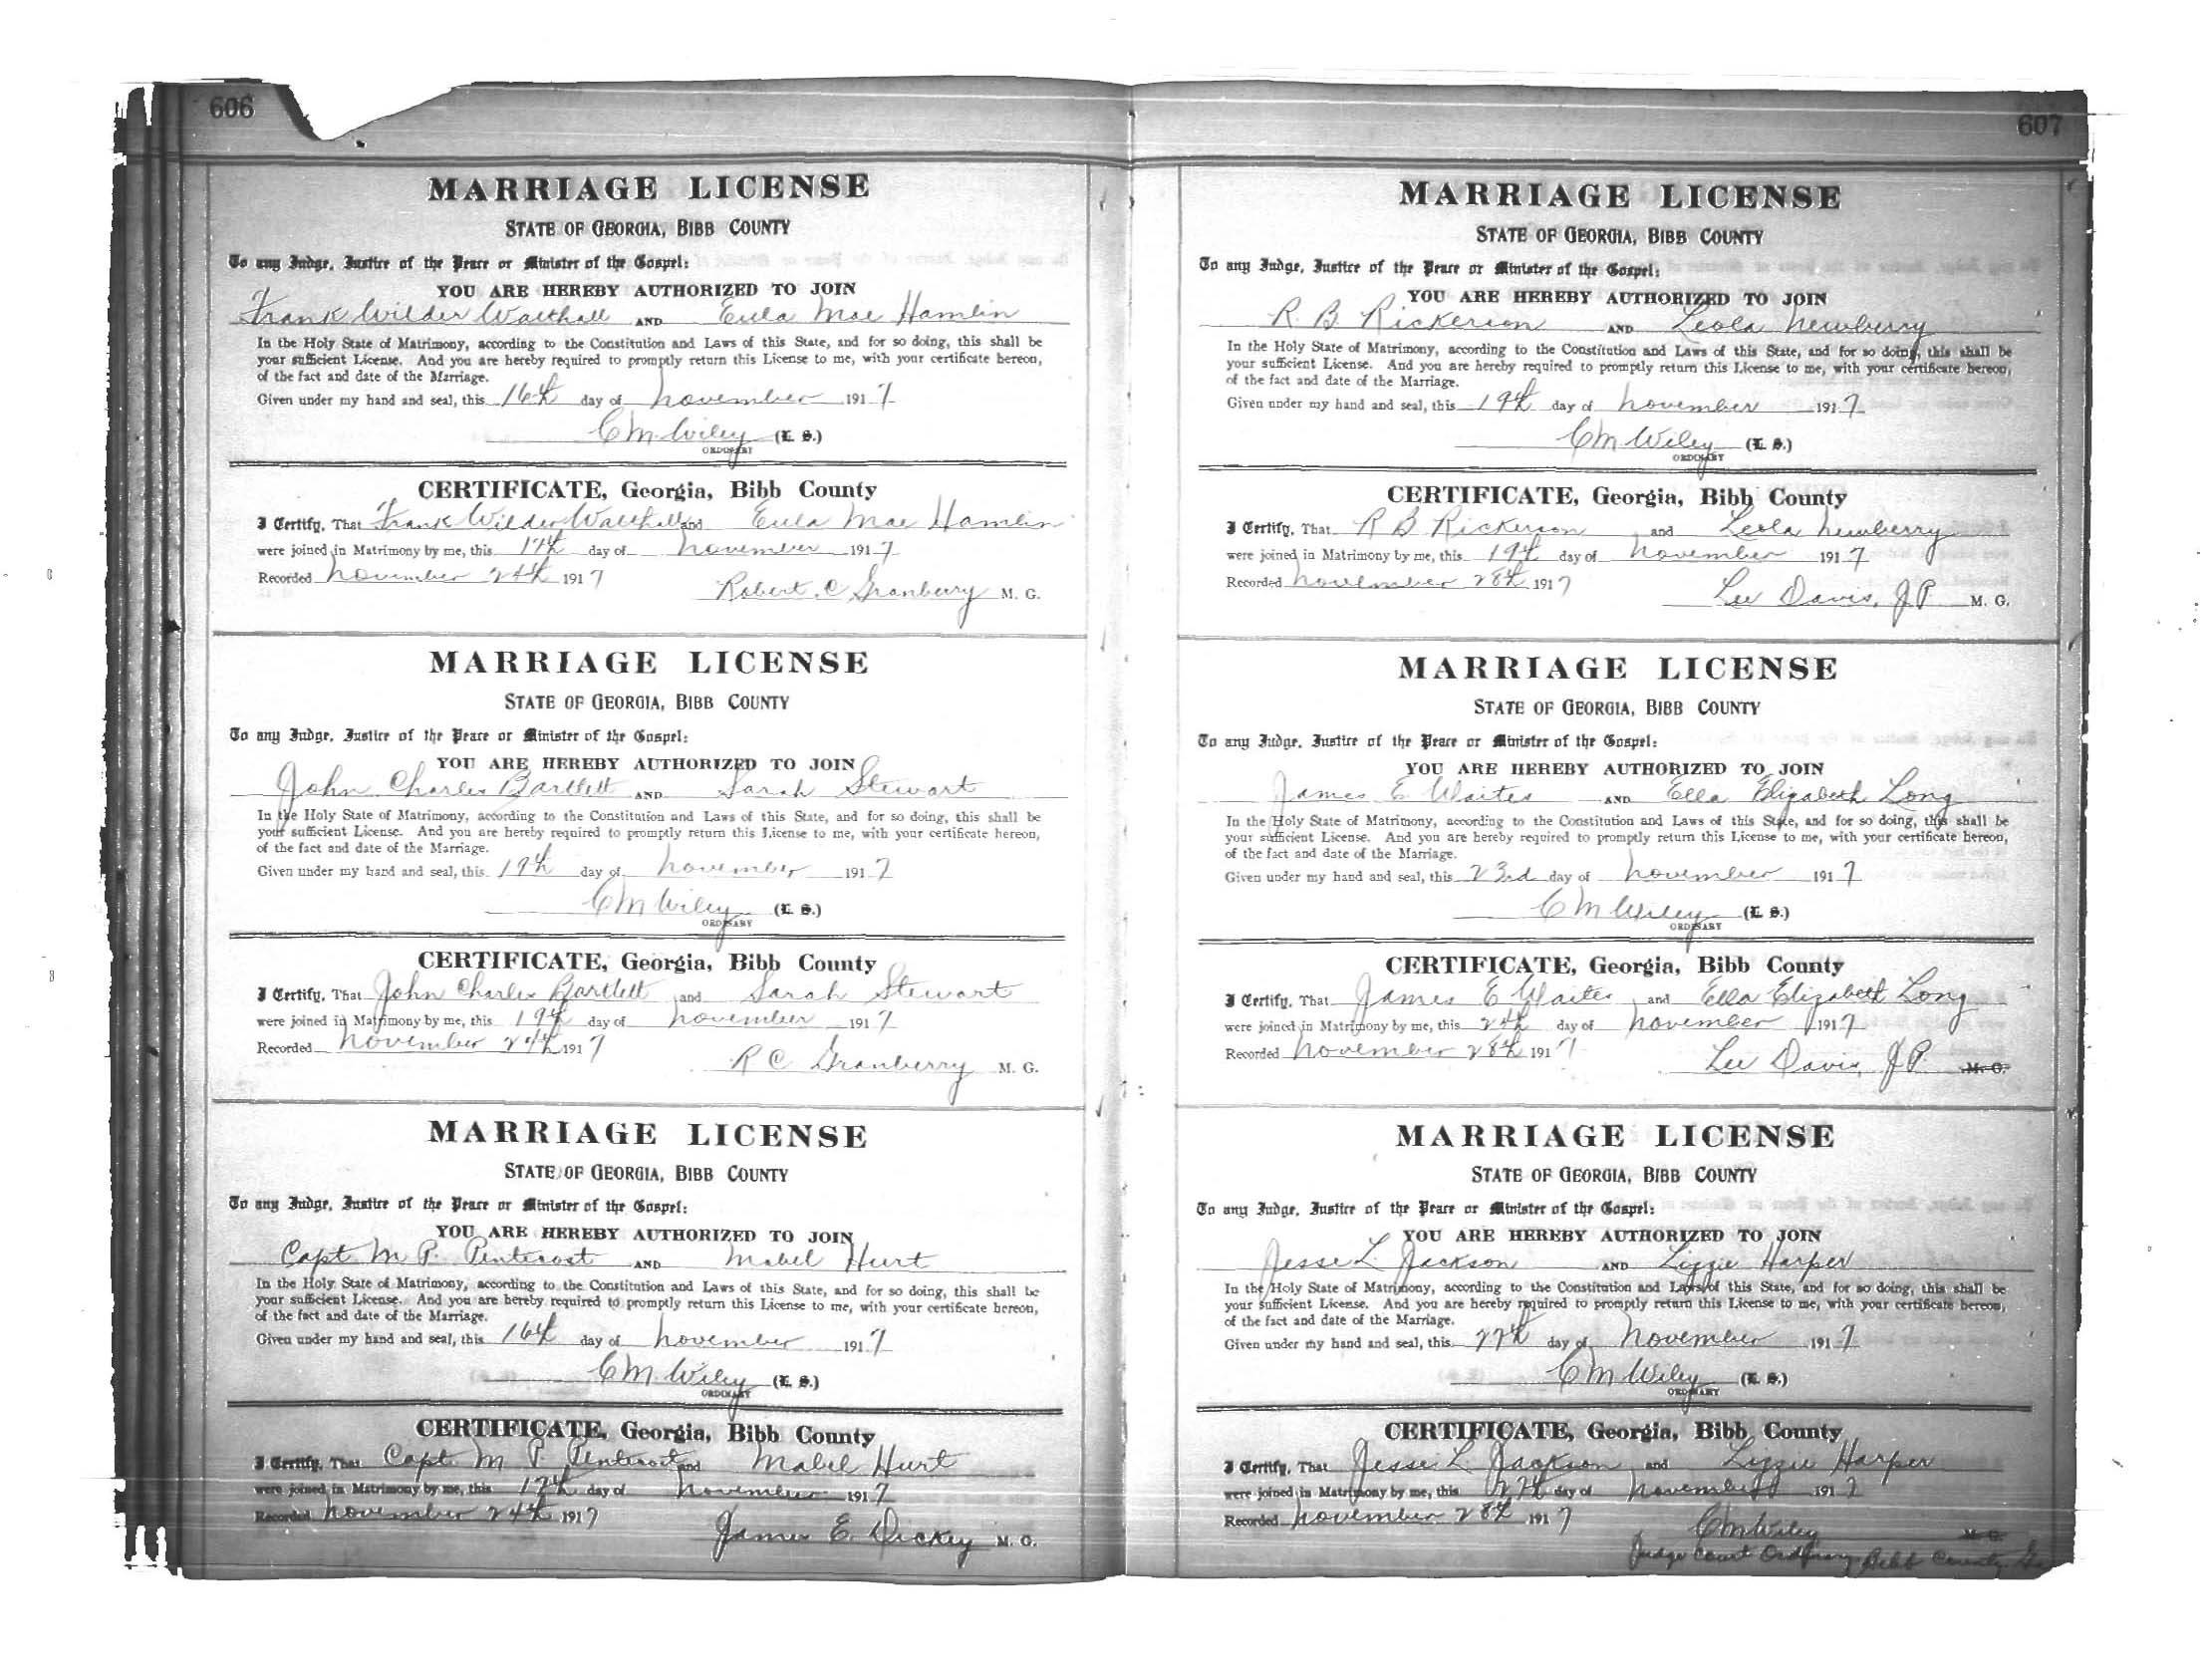 606
MARRIAGE LICENSE
STATE OF GEORGIA, BIBB COUNTY
To any Judge, Justice of the Peace or Minister of the Gospel:
YOU ARE HEREBY AUTHORIZED TO JOIN
Frank Wilder Walthall AND Eula Mae Hamlin
In the Holy State of Matrimony, according to the Constitution and Laws of this State, and for so doing, this shall be
your sufficient License. And you are hereby required to promptly return this License to me, with your certificate hereon,
of the fact and date of the Marriage.
Given under my hand and seal, this 16th day of November 1917
C M Wiley (L. S.)
ORDINARY
CERTIFICATE, Georgia, Bibb County
I Certify, That Frank Wilder Walthall and Eula Mae Hamlin
were joined in Matrimony by me, this 17th day of November 1917
Recorded November 24th 1917
Robert. C Granberry M. G.
MARRIAGE LICENSE
STATE OF GEORGIA, BIBB COUNTY
To any Judge, Justice of the Peace or Minister of the Gospel:
YOU ARE HEREBY AUTHORIZED TO JOIN
John Charles Bartlett AND Sarah Stewart
In the Holy State of Matrimony, according to the Constitution and Laws of this State, and for so doing, this shall be
your sufficient License. And you are hereby required to promptly return this License to me, with your certificate hereon,
of the fact and date of the Marriage.
Given under my hand and seal, this 19th day of November 1917
C M Wiley (L. S.)
ORDINARY
CERTIFICATE, Georgia, Bibb County
I Certify, That John Charles Bartlett and Sarah Stewart
were joined in Matrimony by me, this 19th day of November 1917
Recorded November 24th 1917
R C Granberry M. G.
MARRIAGE LICENSE
STATE OF GEORGIA, BIBB COUNTY
To any Judge, Justice of the Peace or Minister of the Gospel:
YOU ARE HEREBY AUTHORIZED TO JOIN
Capt M P. Pentecost AND Mabel Hurt
In the Holy State of Matrimony, according to the Constitution and Laws of this State, and for so doing, this shall be
your sufficient License. And you are hereby required to promptly return this License to me, with your certificate hereon,
of the fact and date of the Marriage.
Given under my hand and seal, this 16th day of November 1917
C M. Wiley (L. S.)
ORDINARY
CERTIFICATE, Georgia, Bibb County
I Certify, That Capt. M P Pentecost and Mabel Hurt
were joined in Matrimony by me, this 17th day of November 1917
Recorded November 24th 1917
James E. Dickey M. G.
607
MARRIAGE LICENSE
STATE OF GEORGIA, BIBB COUNTY
To any Judge, Justice of the Peace or Minister of the Gospel:
YOU ARE HEREBY AUTHORIZED TO JOIN
R. B. Rickerson AND Leola Newberry
In the Holy State of Matrimony, according to the Constitution and Laws of this State, and for so doing, this shall be
your sufficient License. And you are hereby required to promptly return this License to me, with your certificate hereon,
of the fact and date of the Marriage.
Given under my hand and seal, this 19th day of November 1917
C M Wiley (L. S.)
ORDINARY
CERTIFICATE, Georgia, Bibb County
I Certify, That R B Rickerson and Leola Newberry
were joined in Matrimony by me, this 19th day of November 1917
Recorded November 28th 1917
Lee Davis, J P. M. G.
MARRIAGE LICENSE
STATE OF GEORGIA, BIBB COUNTY
To any Judge, Justice of the Peace or Minister of the Gospel:
YOU ARE HEREBY AUTHORIZED TO JOIN
James E Waites AND Ella Elizabeth Long
In the Holy State of Matrimony, according to the Constitution and Laws of this State, and for so doing, this shall be
your sufficient License. And you are hereby required to promptly return this License to me, with your certificate hereon,
of the fact and date of the Marriage.
Given under my hand and seal, this 23rd day of November 1917
C M Wiley (L. S.)
ORDINARY
CERTIFICATE, Georgia, Bibb County
I Certify, That James E Waites and Ella Elizabeth Long
were joined in Matrimony by me, this 24th day of November 1917
Recorded November 28th 1917
Lee Davis, J P. M. G.
MARRIAGE LICENSE
STATE OF GEORGIA, BIBB COUNTY
To any Judge, Justice of the Peace or Minister of the Gospel:
YOU ARE HEREBY AUTHORIZED TO JOIN
Jesse L. Jackson AND Lizzie Harper
In the Holy State of Matrimony, according to the Constitution and Laws of this State, and for so doing, this shall be
your sufficient License. And you are hereby required to promptly return this License to me, with your certificate hereon,
of the fact and date of the Marriage.
Given under my hand and seal, this 27th day of November 1917
C M Wiley (L. S.)
ORDINARY
CERTIFICATE, Georgia, Bibb County
I Certify, That Jesse L Jackson and Lizzie Harper
were joined in Matrimony by me, this 27th day of November 1917
Recorded November 28th 1917
C M Wiley M. G.
Judge Court Ordinary Bibb County, Ga